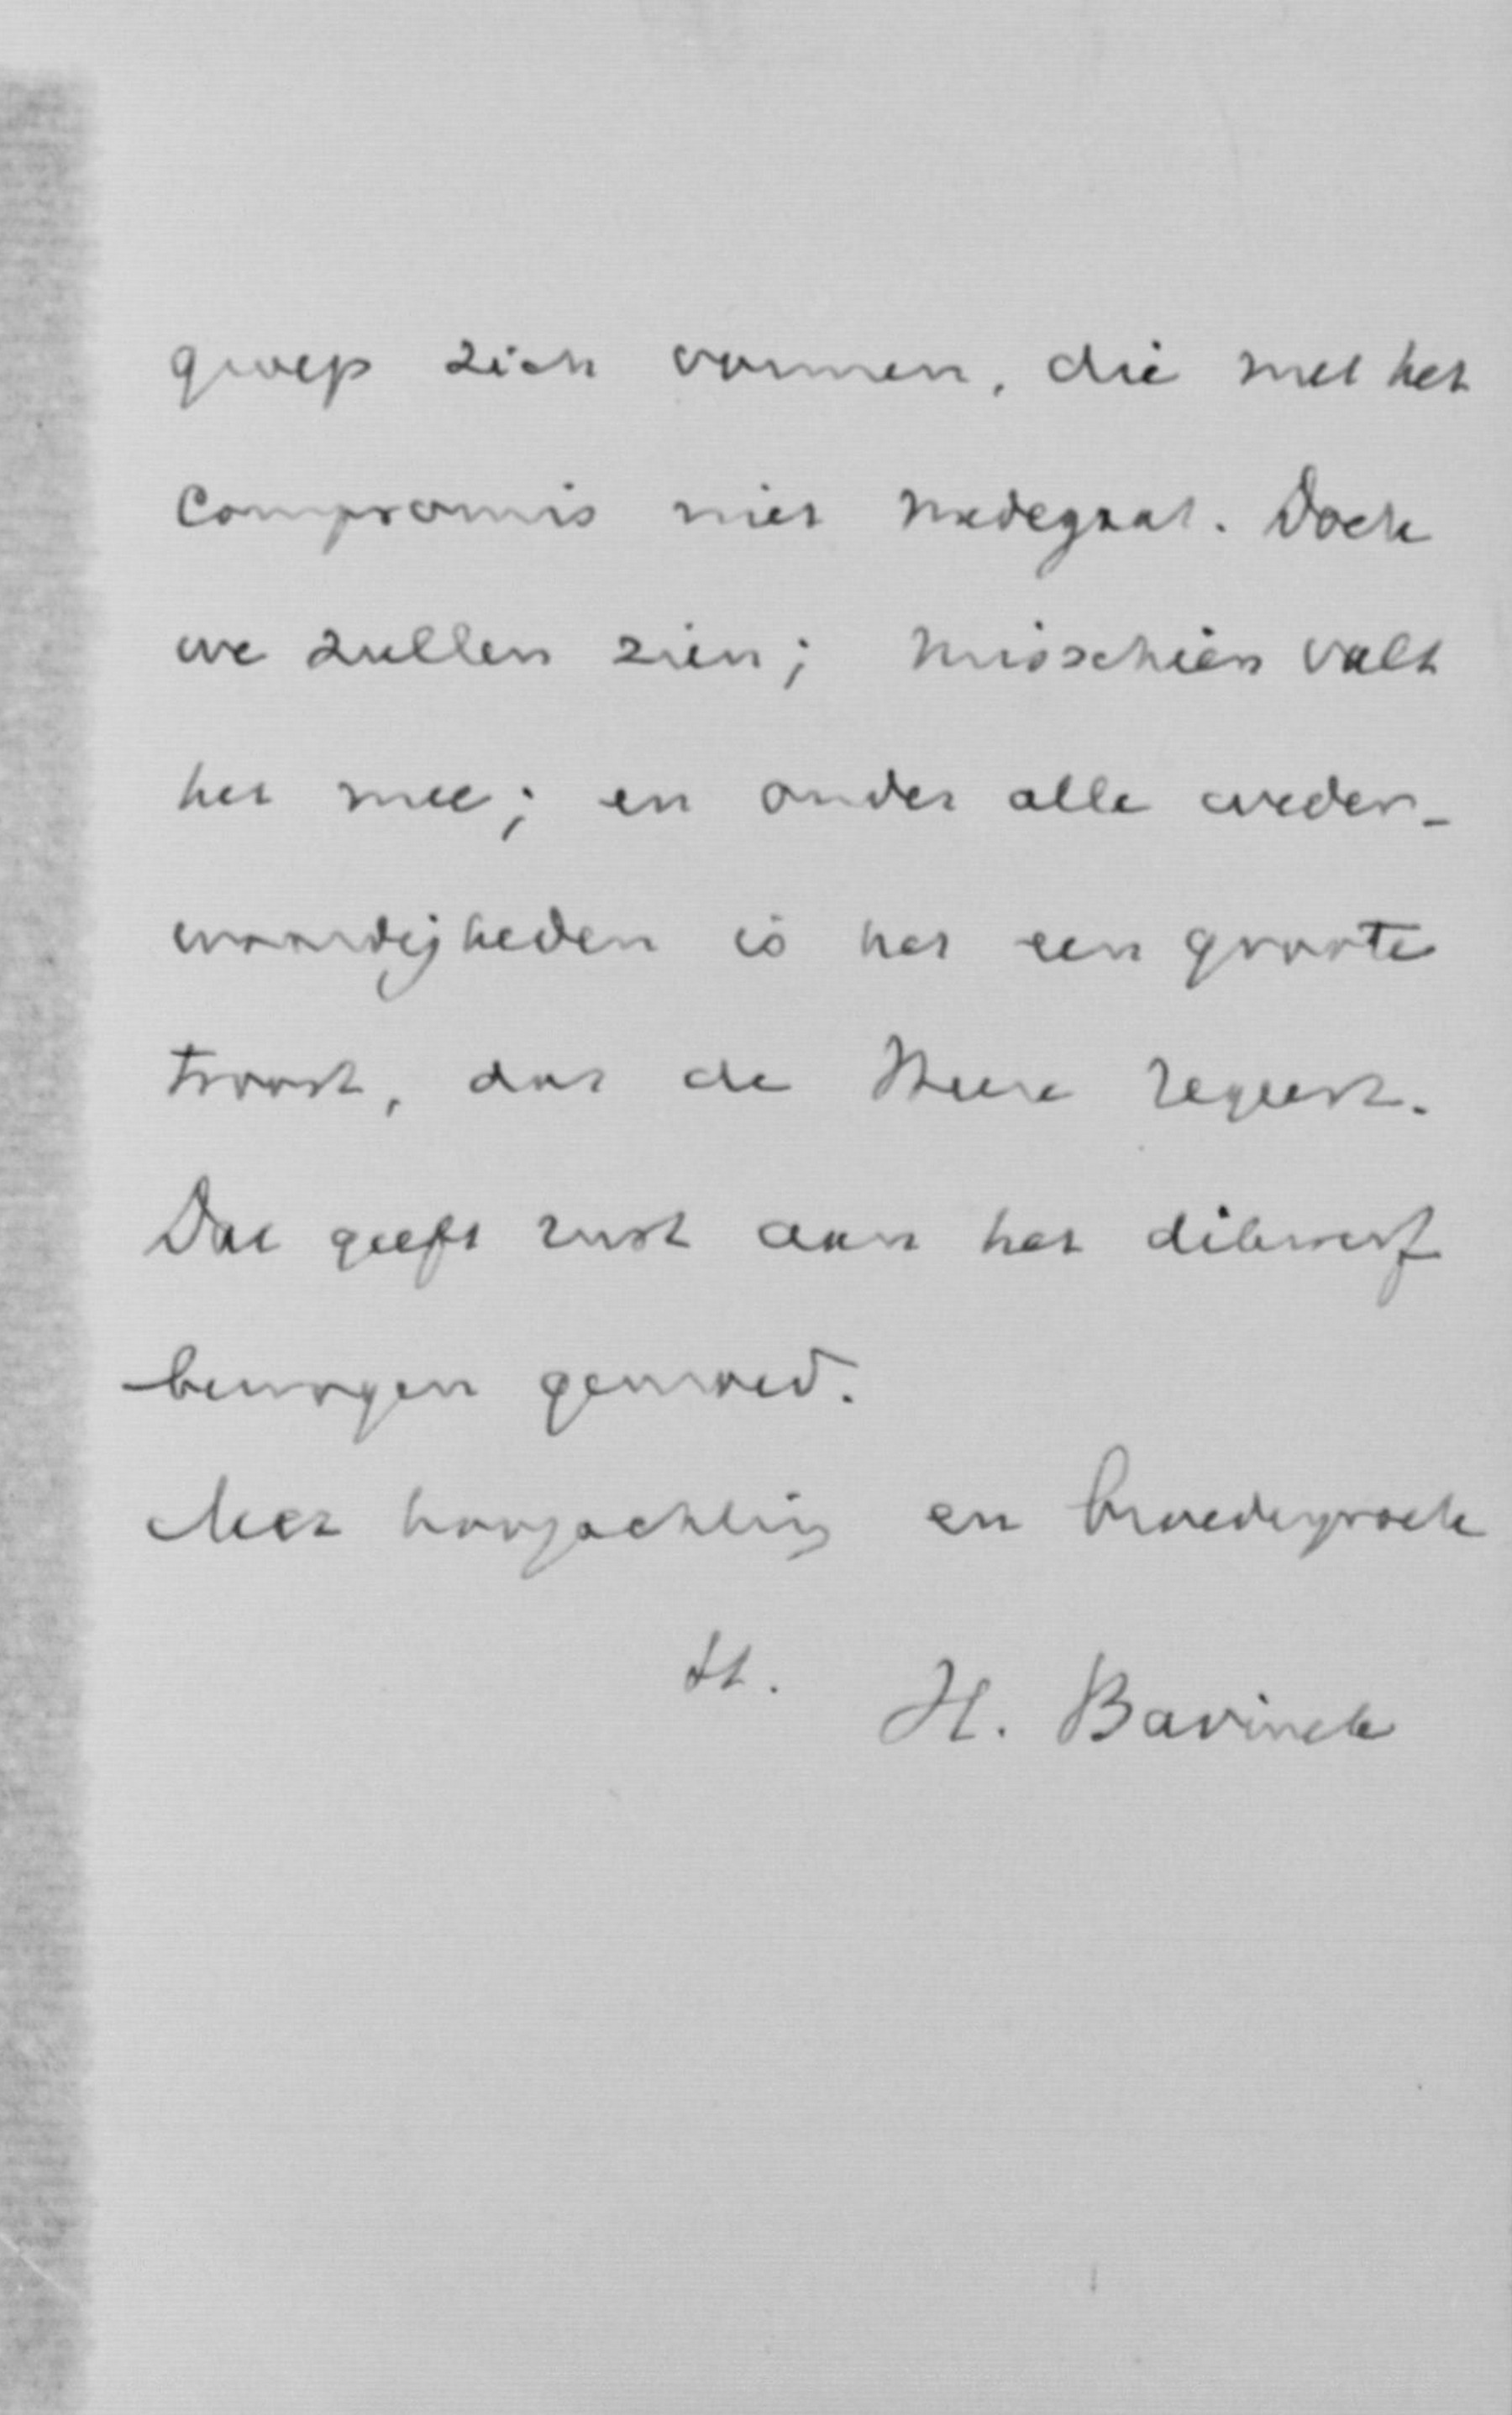 groep zich vormen, die met het
Compromis niet medegaat. Doch
we zullen zien; misschien valt
het mee; en onder alle weder-
waardigheden is het een groote
troost, dat de Heere regeert.
Dat geeft rust aan het dikwerf
bewogen gemoed.
Met hoogachting en broedergroete
H. Bavinck